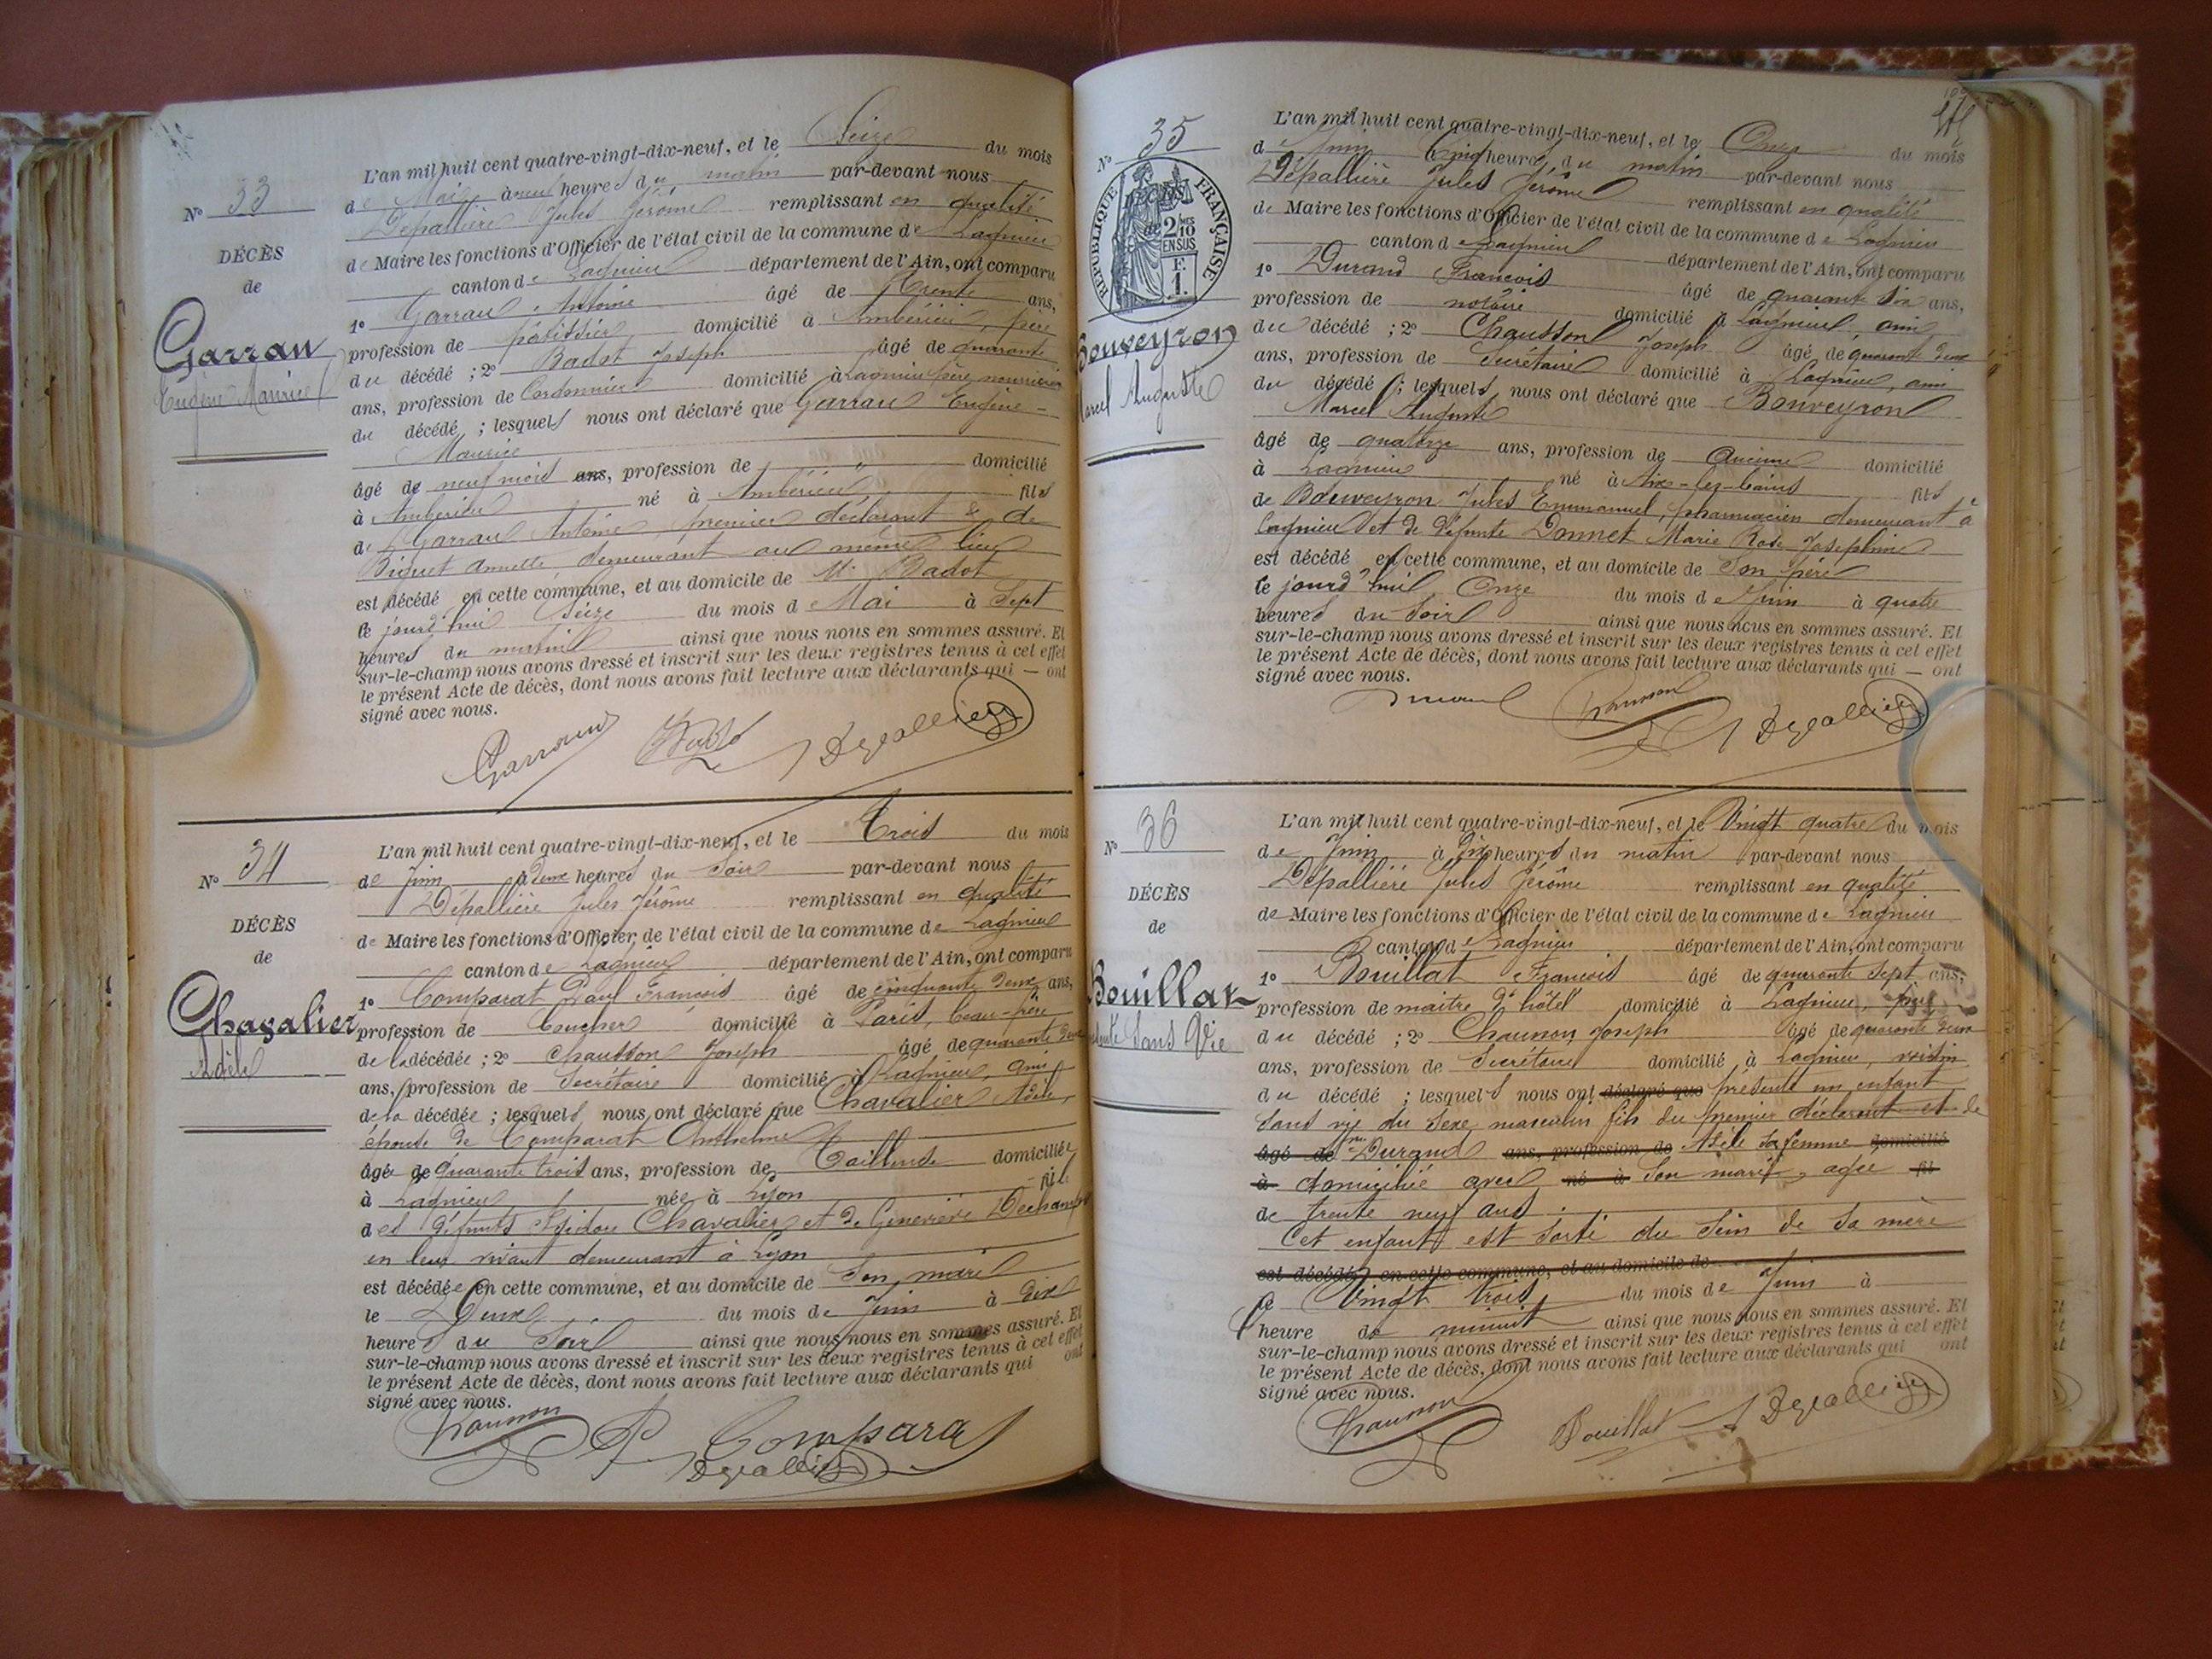 N° 33
DÉCÈS
de
Garrau
Eugène Maurice
L'an mil huit cent quatre-vingt-dix-neuf, et le Seize du mois
de Mai à neuf heures du matin par-devant nous
Dépallière Jules Jérôme remplissant en qualité
de Maire les fonctions d'Officier de l'état civil de la commune de Lagnieu
canton de Lagnieu département de l'Ain, ont comparu
1° Garrau Antoine âgé de Trente ans,
profession de pâtissier domicilié à Ambérieu, père
du décédé ; 2° Badot Joseph âgé de quarante
ans, profession de Cordonnier domicilié à Lagnieu père nourricier
du décédé ; lesquels nous ont déclaré que Garrau Eugène-
Maurice
âgé de neuf mois ans, profession de " domicilié
à Ambérieu né à Ambérieu fils
de Garrau Antoine, premier déclarant & de
Biguet Annette demeurant au même lieu
est décédé en cette commune, et au domicile de Mr Badot
le jourd'hui Seize du mois de Mai à Sept
heures du matin ainsi que nous nous en sommes assuré. Et
sur-le-champ nous avons dressé et inscrit sur les deux registres tenus à cet effet
le présent Acte de décès, dont nous avons fait lecture aux déclarants qui — ont
signé avec nous.
Garrau Dépallière
N° 34
DÉCÈS
de
Chavalier
Adèle
L'an mil huit cent quatre-vingt-dix-neuf, et le Trois du mois
de Juin à deux heures du Soir par-devant nous
Dépallière Jules Jérôme remplissant en qualité
de Maire les fonctions d'Officier de l'état civil de la commune de Lagnieu
canton de Lagnieu département de l'Ain, ont comparu
1° Comparat Paul François âgé de cinquante deux ans,
profession de Cocher domicilié à Paris, beau-père
de la décédée ; 2° Chausson Joseph âgé de quarante deux
ans, profession de Secrétaire domicilié à Lagnieu, ami
de la décédée ; lesquels nous ont déclaré que Chavalier Adèle,
épouse de Comparat Anthelme
âgée de quarante trois ans, profession de Tailleuse domiciliée
à Lagnieu née à Lyon fille
des défunts Isidore Chavalier et de Geneviève Dechamps
en leur vivant demeurant à Lyon
est décédée en cette commune, et au domicile de Son mari
le Deux du mois de Juin à dix
heures du Soir ainsi que nous nous en sommes assuré. Et
sur-le-champ nous avons dressé et inscrit sur les deux registres tenus à cet effet
le présent Acte de décès, dont nous avons fait lecture aux déclarants qui ont
signé avec nous.
Chausson P Comparat
Dépallière
N° 35
RÉPUBLIQUE FRANÇAISE
2/10 EN SUS
F. 1.
Bouveyron
Marcel Auguste
L'an mil huit cent quatre-vingt-dix-neuf, et le Onze du mois
de Juin à cinq heures du matin par-devant nous
Dépallière Jules Jérôme remplissant en qualité
de Maire les fonctions d'Officier de l'état civil de la commune de Lagnieu
canton de Lagnieu département de l'Ain, ont comparu
1° Durand François âgé de quarante six ans,
profession de notaire domicilié à Lagnieu, ami
du décédé ; 2° Chausson Joseph âgé de quarante deux
ans, profession de Secrétaire domicilié à Lagnieu, ami
du décédé ; lesquels nous ont déclaré que Bouveyron
Marcel Auguste
âgé de quatorze ans, profession de Aucune domicilié
à Lagnieu né à Aix-les-bains fils
de Bouveyron Jules Emmanuel, pharmacien demeurant à
Lagnieu et de défunte Donnet Marie Rose Joséphine
est décédé en cette commune, et au domicile de Son père
le jourd'hui Onze du mois de Juin à quatre
heures du Soir ainsi que nous nous en sommes assuré. Et
sur-le-champ nous avons dressé et inscrit sur les deux registres tenus à cet effet
le présent Acte de décès, dont nous avons fait lecture aux déclarants qui — ont
signé avec nous.
Durand Chausson Dépallière
N° 36
DÉCÈS
de
Bouillat
Sans Vie
L'an mil huit cent quatre-vingt-dix-neuf, et le Vingt quatre du mois
de Juin à dix heures du matin par-devant nous
Dépallière Jules Jérôme remplissant en qualité
de Maire les fonctions d'Officier de l'état civil de la commune de Lagnieu
canton de Lagnieu département de l'Ain, ont comparu
1° Bouillat François âgé de quarante Sept ans,
profession de maître d'hôtel domicilié à Lagnieu, père
du décédé ; 2° Chausson Joseph âgé de quarante deux
ans, profession de Secrétaire domicilié à Lagnieu, voisin
du décédé ; lesquels nous ont déclaré que présenté un enfant
Sans vie du Sexe masculin fils du premier déclarant et de
âgé de Durand ans, profession de Adèle sa femme domicilié
à domiciliée avec né à Son mari, âgée fil
de trente neuf ans
Cet enfant est sorti du Sein de Sa mère
est décédé en cette commune, et au domicile de
le Vingt trois du mois de Juin à
heure de minuit ainsi que nous nous en sommes assuré. Et
sur-le-champ nous avons dressé et inscrit sur les deux registres tenus à cet effet
le présent Acte de décès, dont nous avons fait lecture aux déclarants qui ont
signé avec nous.
Chausson Bouillat Dépallière